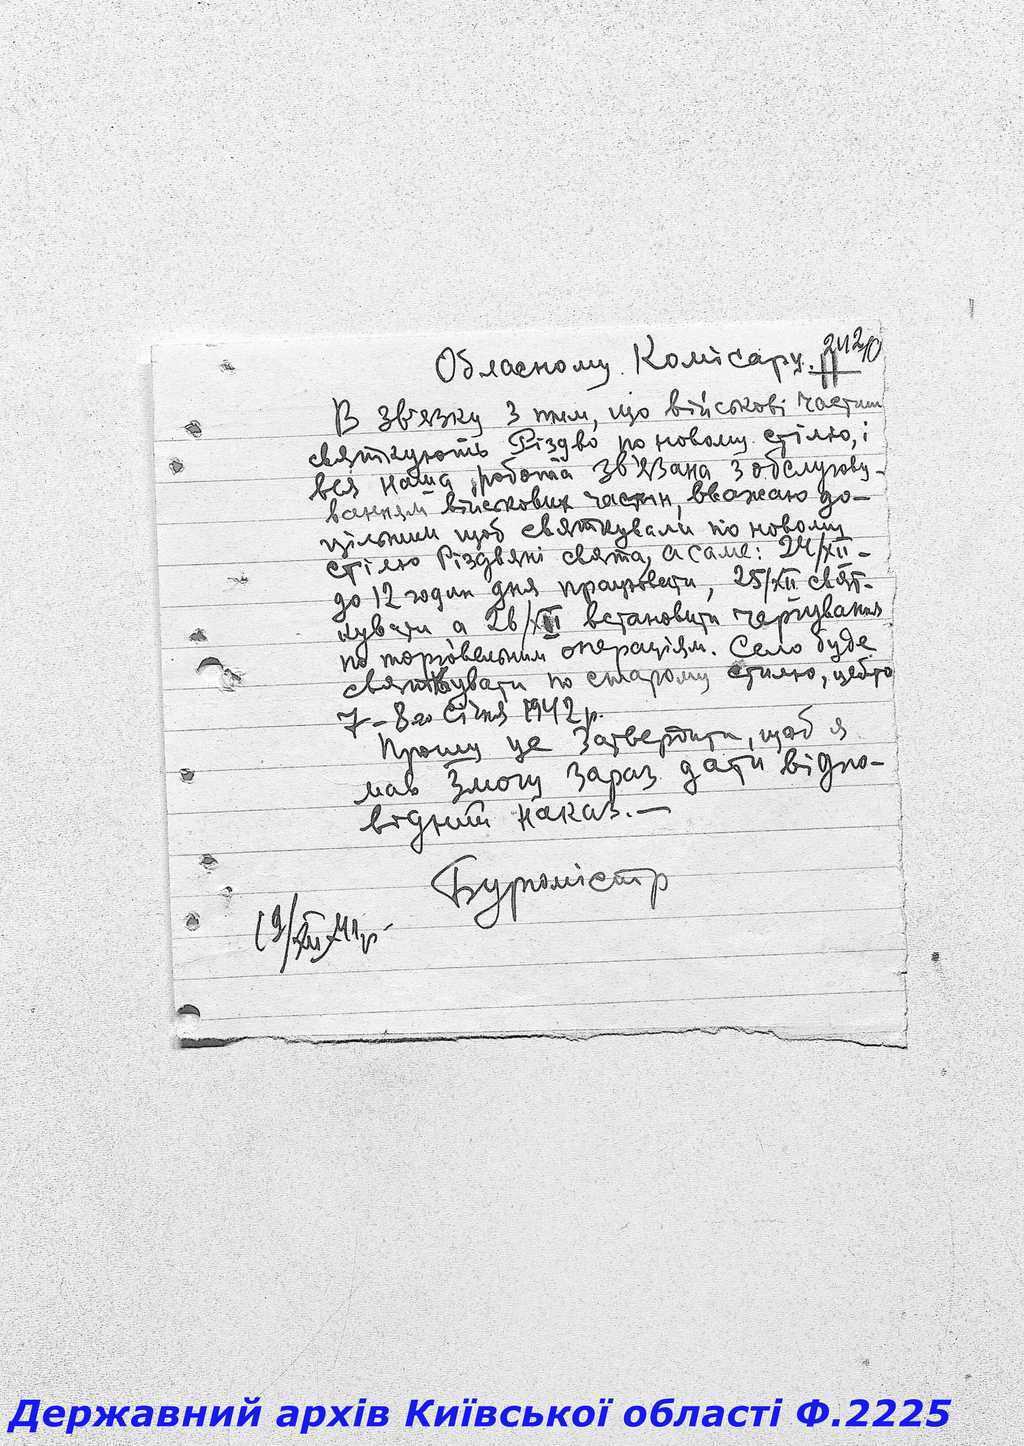 Обласному Комісару.
В зв'язку з тим, що військові частини
святкують Різдво по новому стілю, і
вся наша робота зв'язана з обслугову-
ванням військових частин, вважаю до-
цільним щоб святкували по новому
стілю Різдвяні свята, а саме: 24/XII -
до 12 годин дня працювати, 25/XII свят-
кувати а 26/XII встановити чергування
по торговельним операціям. Село буде
святкувати по старому стилю, цебто
7-8го Січня 1942 р.
Прошу це затвердити, щоб я
мав змогу зараз дати відпо-
відний наказ. —
Бургомістр
19/XII 41 р.
Державний архів Київської області Ф.2225